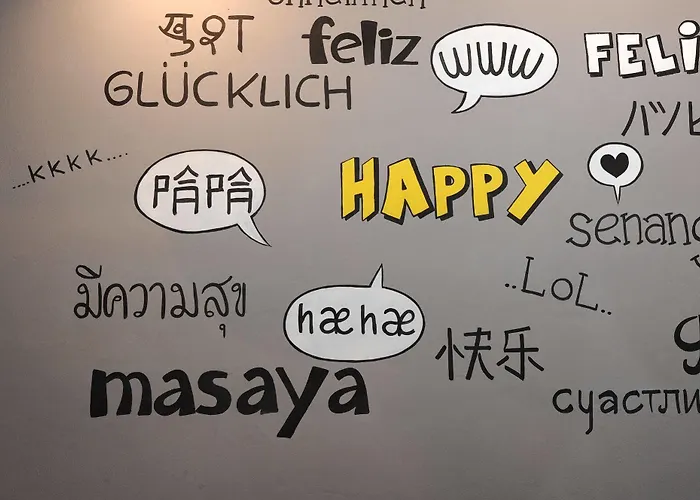 खुश
feliz
www
FELI
GLÜCKLICH
...kkkk....
哈哈
HAPPY
senang
มีความสุข
hæhæ
..LOL..
快乐
masaya
суастли